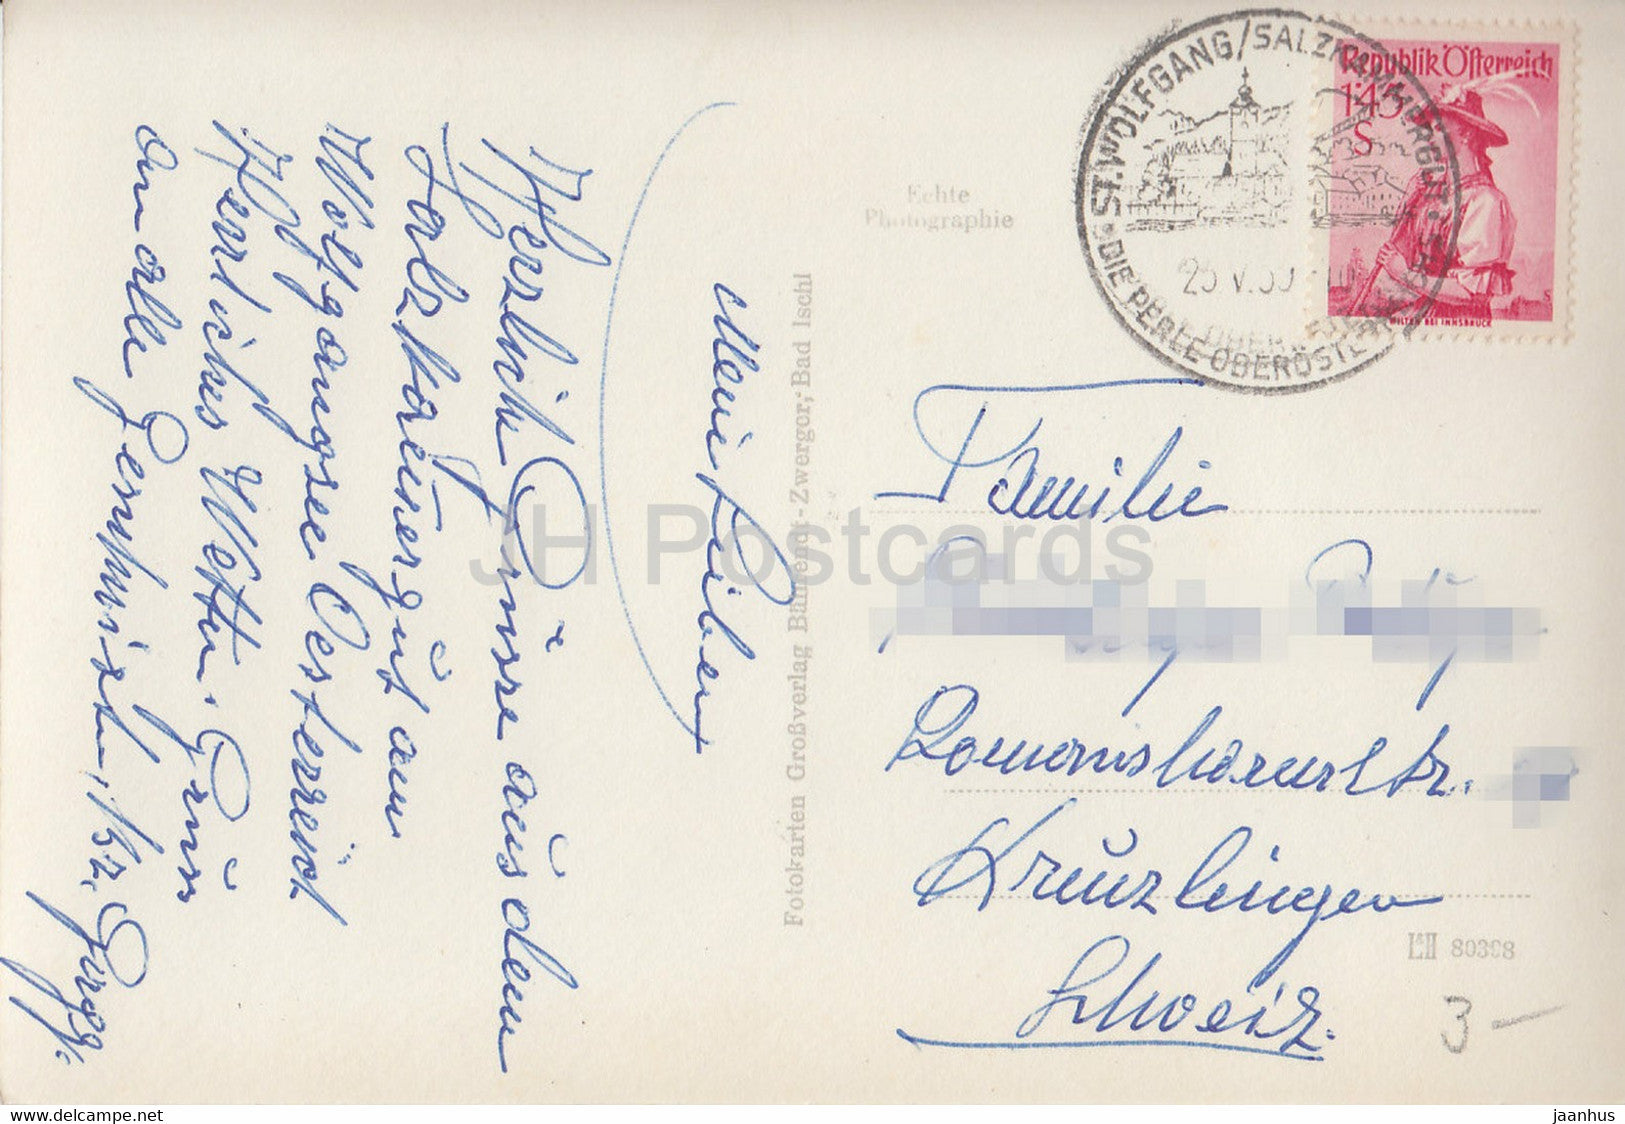 Meine Lieben
Herzliche Grüsse aus dem
Salzkammergut am
Wolfgangsee Oesterreich
Herrliches Wetter. Gruss
an alle
Fotokarten Großverlag Bährend-Zwergor, Bad Ischl
Echte
Photographie
ST. WOLFGANG/SALZKAMMERGUT
DIE PERLE OBERÖSTERREICHS
25 V.
Republik Österreich
1·45
S
WILTEN BEI INNSBRUCK
Familie
Romanshornerstr.
Kreuzlingen
Schweiz.
L&H 80398
3 —
JH Postcards
www.delcampe.net
jaanhus